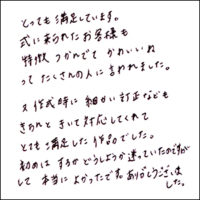 とっても満足しています。
式に来られたお客様も
特徴つかんでて かわいいね
って たくさんの人に言われました。
又作成時に細かい訂正なども
きちんと きいて対応してくれて
とても満足した作品でした。
初めは するかどうしようか迷っていたのですが
して 本当に よかったです。ありがとうございました。